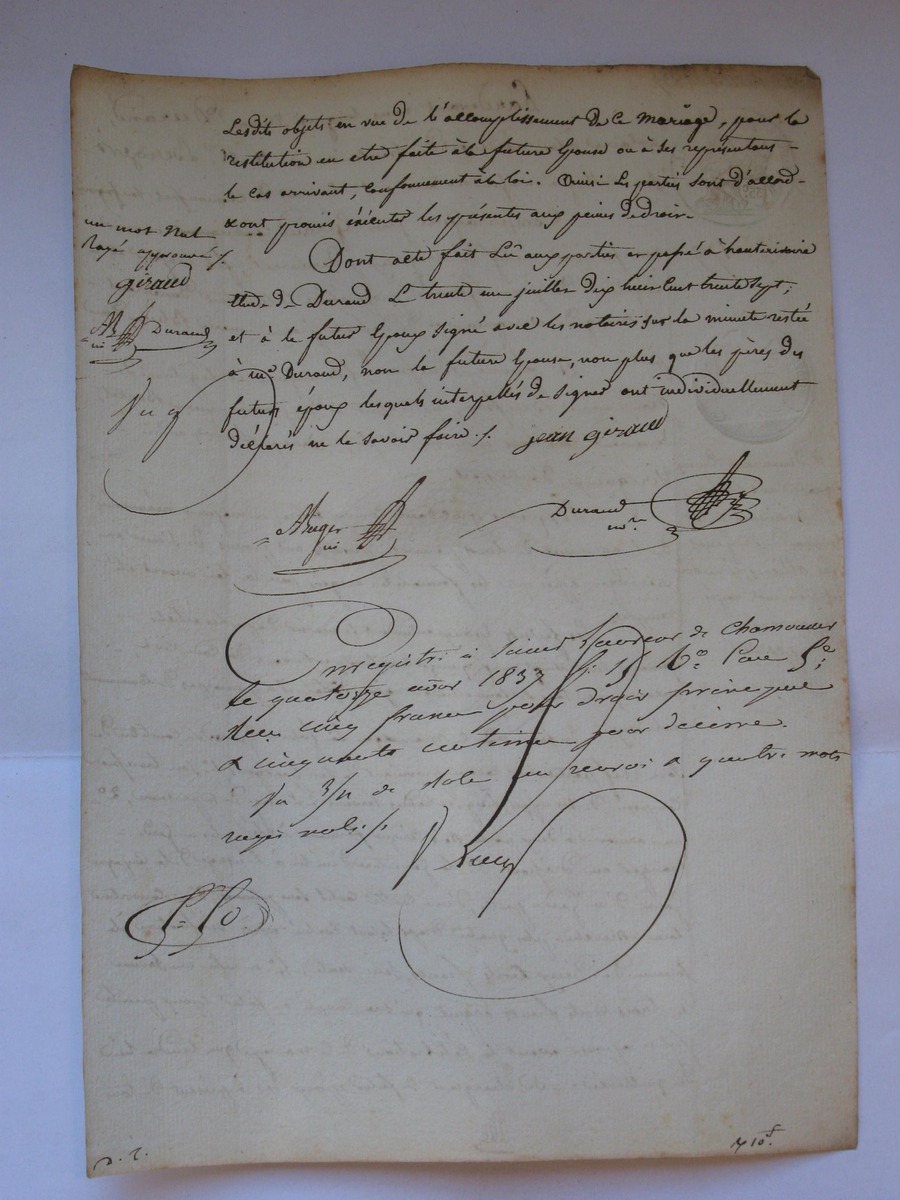 Lesdits objets en vue de l'accomplissement de ce mariage, pour la
restitution en etre faite à la future Epouse ou à ses representans
le cas arrivant, conformement à la loi. Ainsi les parties sont d'accord
& ont promis éxécuter les présentes aux peines de droit.
un mot nul
Rayé approuvé
giraud
Durand
Dont acte fait Lû aux parties et passé à hauterivoire
Etude de Durand Le trente un juillet dix huit cent trente sept;
et à le futur Epoux signé avec les notaires sur la minute restée
à me Durand, non la future Epouse, non plus que les pères des
futurs époux lesquels interpellés de signer ont individuellement
déclarés ne le savoir faire ./.
jean giraud
Durand
nre
Enregistré à Saint de
le quatorze août 1837 f. 15 Vo. Case 5e;
Reçu cinq francs pour droit principal
& cinquante centimes pour decime.
de role un renvoi & quatre mots
rayés nuls ./.
10f